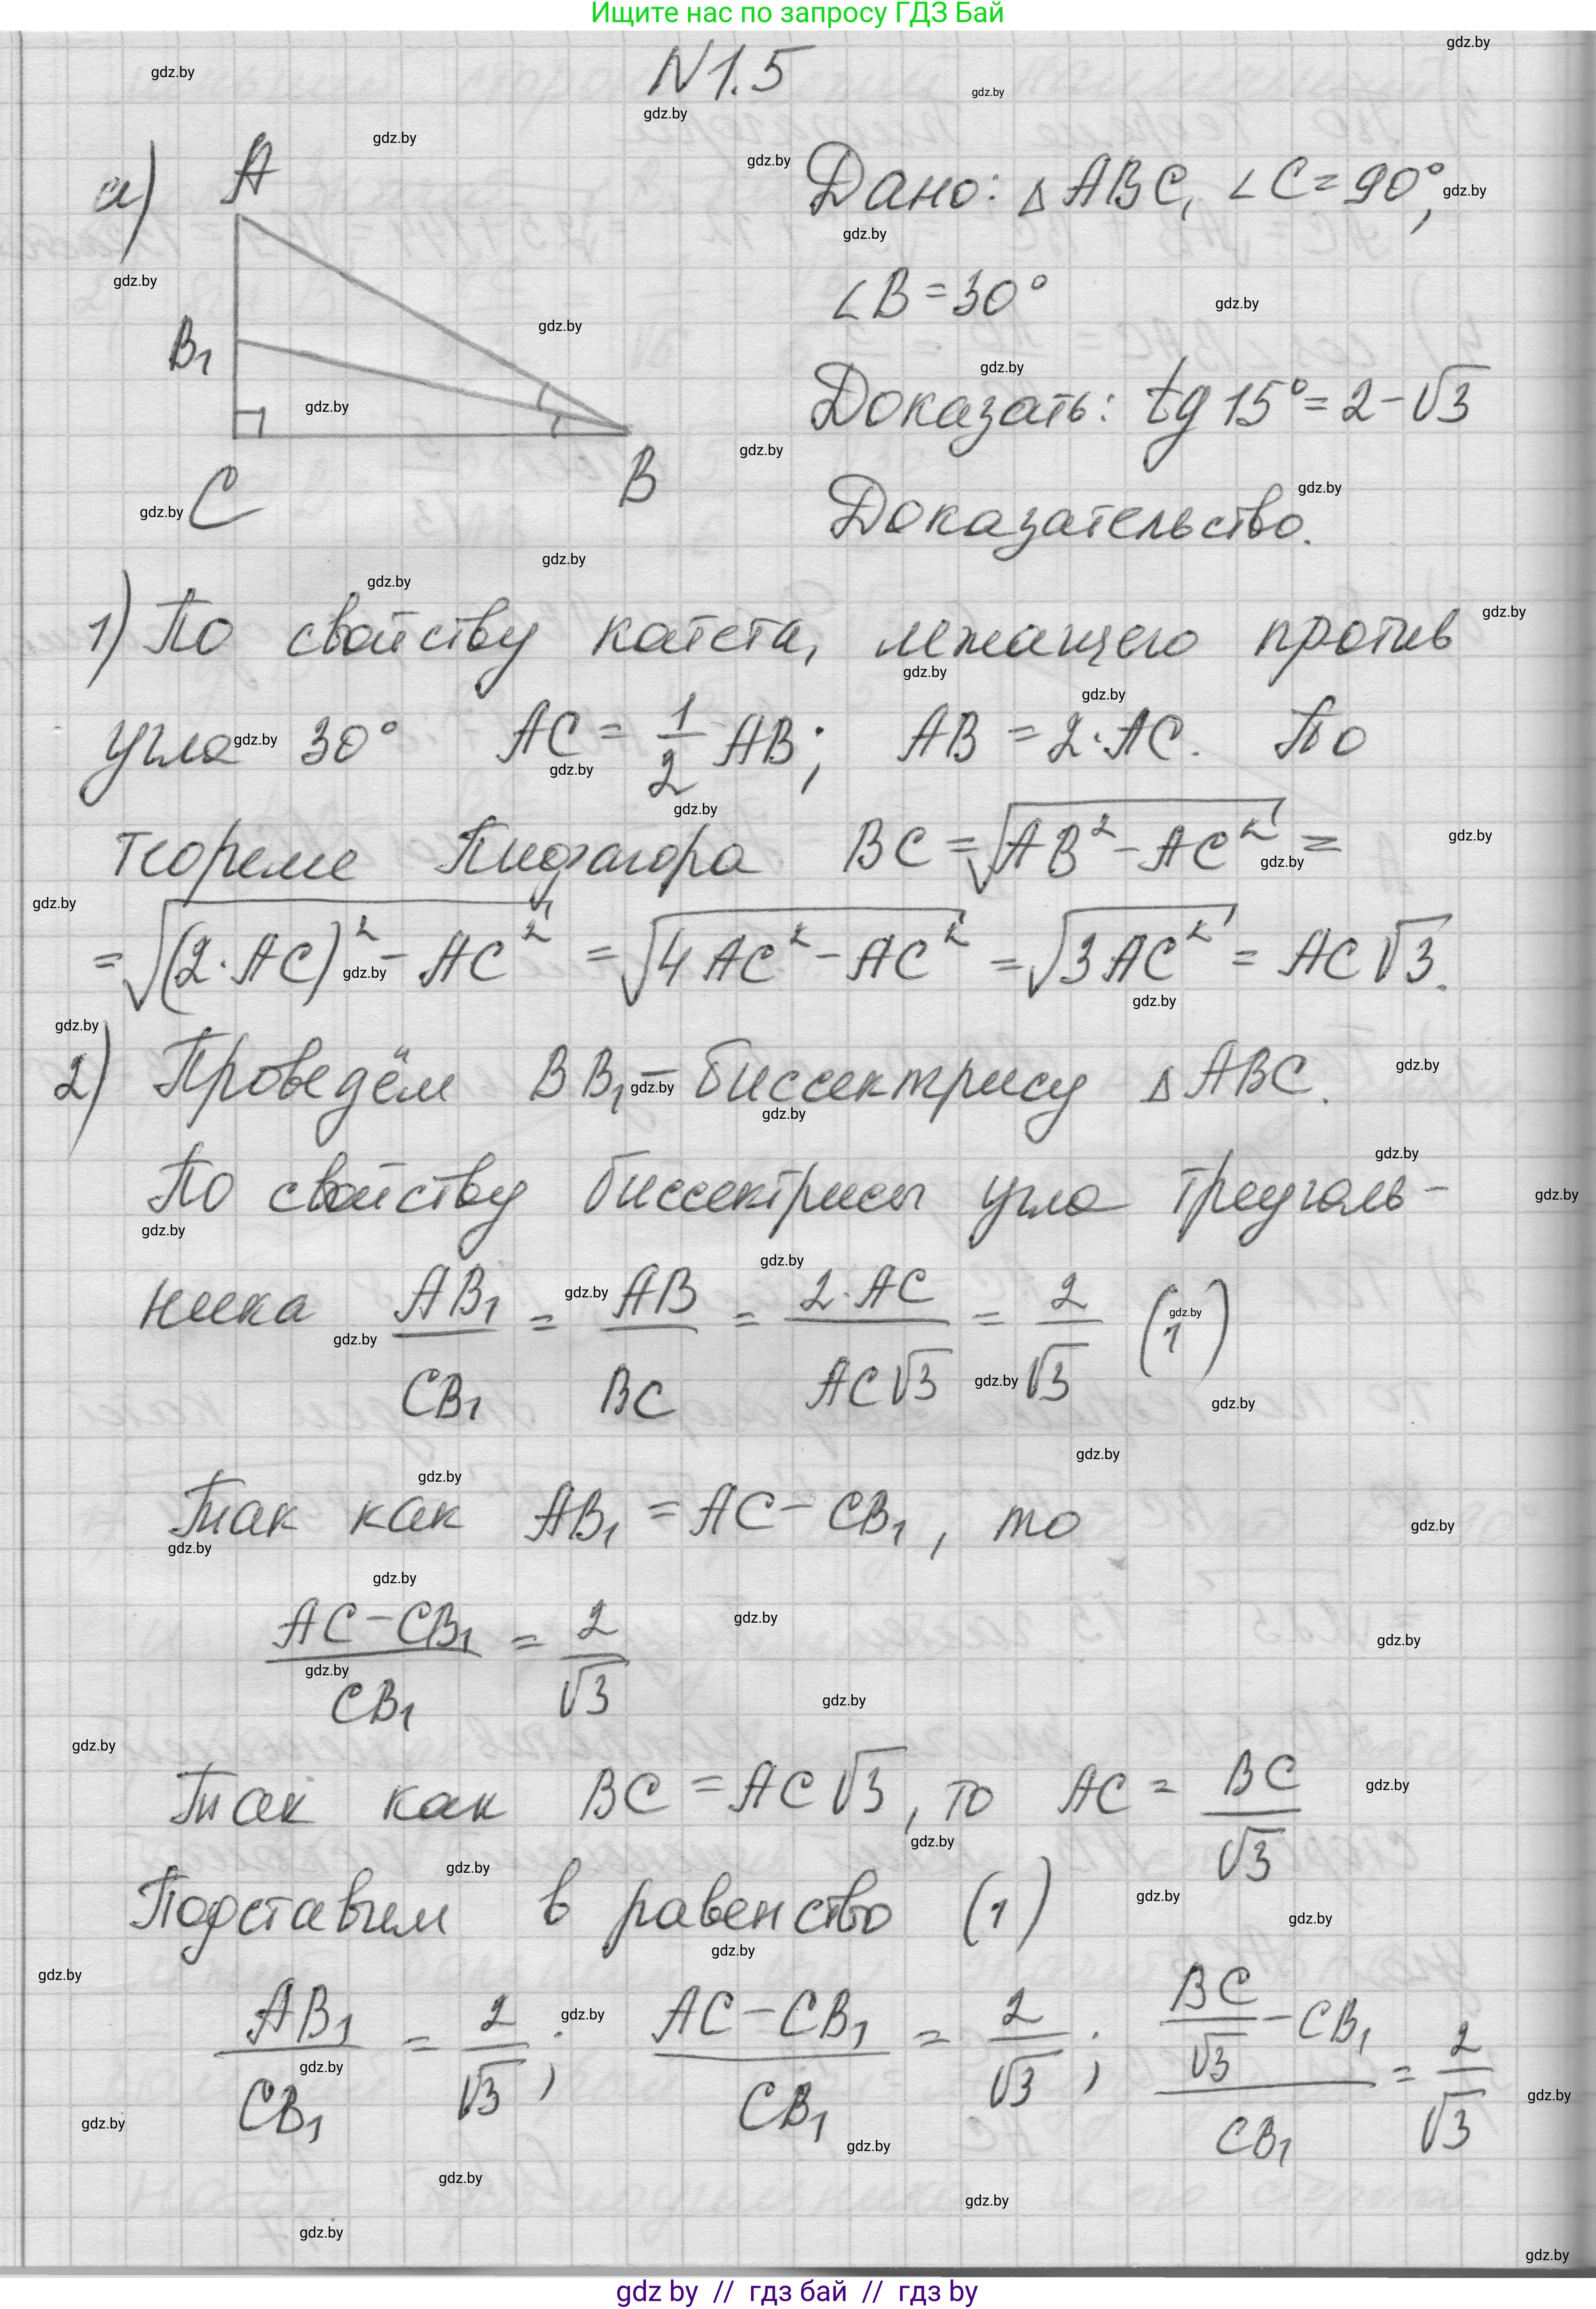 Ищите нас по запросу ГДЗ Бай
N 1.5
а) A
B₁
C
B
Дано: △ABC, ∠C=90°,
∠B=30°
Доказать: tg 15°=2-√3
Доказательство.
1) По свойству катета, лежащего против
угла 30° AC = 1/2 AB; AB = 2·AC. По
теореме Пифагора BC = √(AB² - AC²) =
= √((2·AC)² - AC²) = √(4AC² - AC²) = √(3AC²) = AC√3.
2) Проведём BB₁ - биссектрису △ABC.
По свойству биссектрисы угла треуголь-
ника AB₁/CB₁ = AB/BC = 2·AC/AC√3 = 2/√3 (1)
Так как AB₁ = AC - CB₁, то
(AC - CB₁)/CB₁ = 2/√3
Так как BC = AC√3, то AC = BC/√3
Подставим в равенство (1)
AB₁/CB₁ = 2/√3; (AC - CB₁)/CB₁ = 2/√3; (BC/√3 - CB₁)/CB₁ = 2/√3
gdz by // гдз бай // гдз by
gdz.by